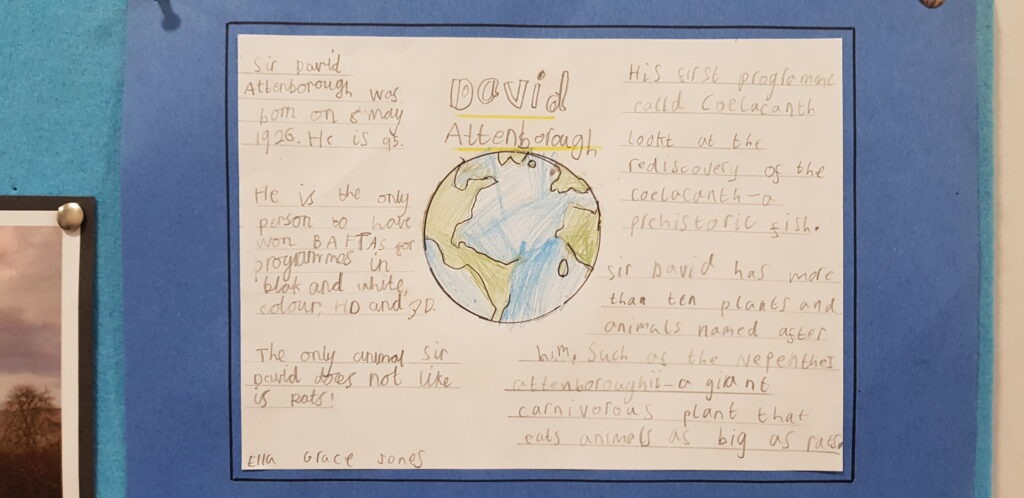 David
Attenborough
Sir David
Attenborough was
born on 8 may
1926. He is 93.
He is the only
person to have
won BAFTAs for
programmas in
blak and white,
colour, HD and 3D.
The only animal Sir
David does not like
is rats!
Ella Grace Jones
His first programme
calld Coelacanth
lookt at the
rediscovery of the
coelacanth-a
prehistoric fish.
Sir David has more
than ten plants and
animals named after
him. Such as the Nepenthes
attenboroughii-a giant
carnivoroas plant that
eats animals as big as rats.